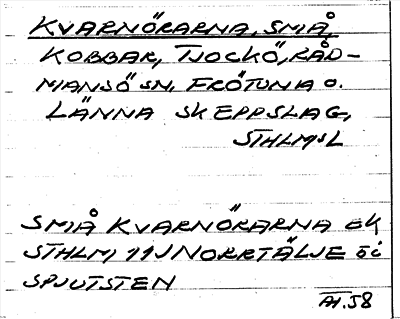 KVARNÖRARNA, SMIÅ,
KOBBAR, TJOCKÖ, RÅD-
MANSÖ SN, FRÖTUNA O.
LÄNNA SKEPPSLAG,
STHLMS L
SMIÅ KVARNÖRARNA EK
STHLM 11J NORRTÄLJE ÖI
SPJUTSTEN
58